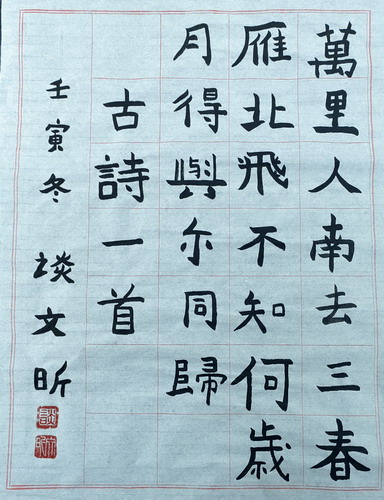 萬里人南去三春
雁北飛不知何歲
月得與尓同歸
古詩一首
壬寅冬 談文昕